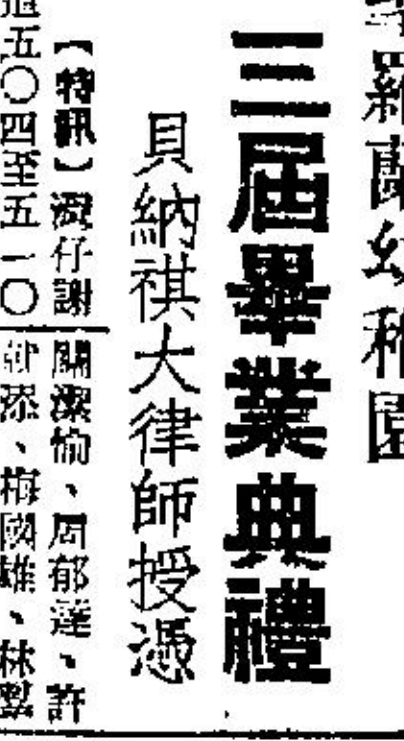 羅蘭幼稚園
三届畢業典禮
貝納祺大律師授憑
【特訊】灣仔謝
道五〇四至五一〇
關潔愉、周郁蓮、許
添、梅國雄、林